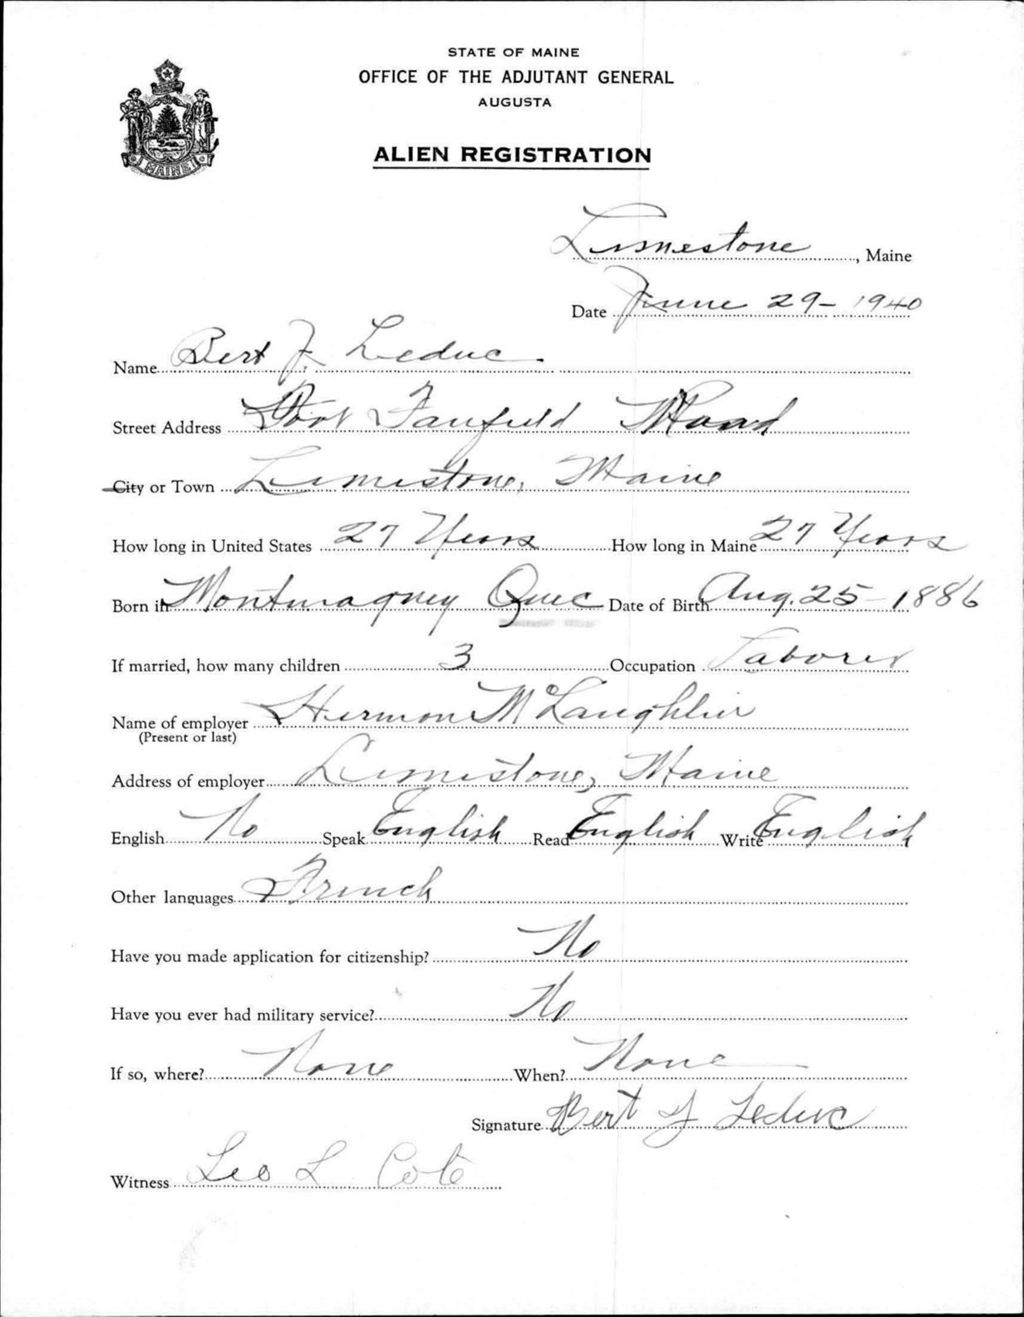 STATE OF MAINE
OFFICE OF THE ADJUTANT GENERAL
AUGUSTA
ALIEN REGISTRATION
MAINE
Limestone, Maine
Date June 29- 1940
Name Bert J. Leduc.
Street Address Fort Fairfield Road
City or Town Limestone, Maine
How long in United States 27 Years How long in Maine 27 Years
Born in Montmagney Quec Date of Birth Aug. 25- 1886
If married, how many children 3 Occupation Laborer
Name of employer Hermon McLaughlin
(Present or last)
Address of employer Limestone, Maine
English No Speak English Read English Write English
Other languages French
Have you made application for citizenship? No
Have you ever had military service? No
If so, where? None When? None
Signature Bert J Leduc
Witness Leo L Cote